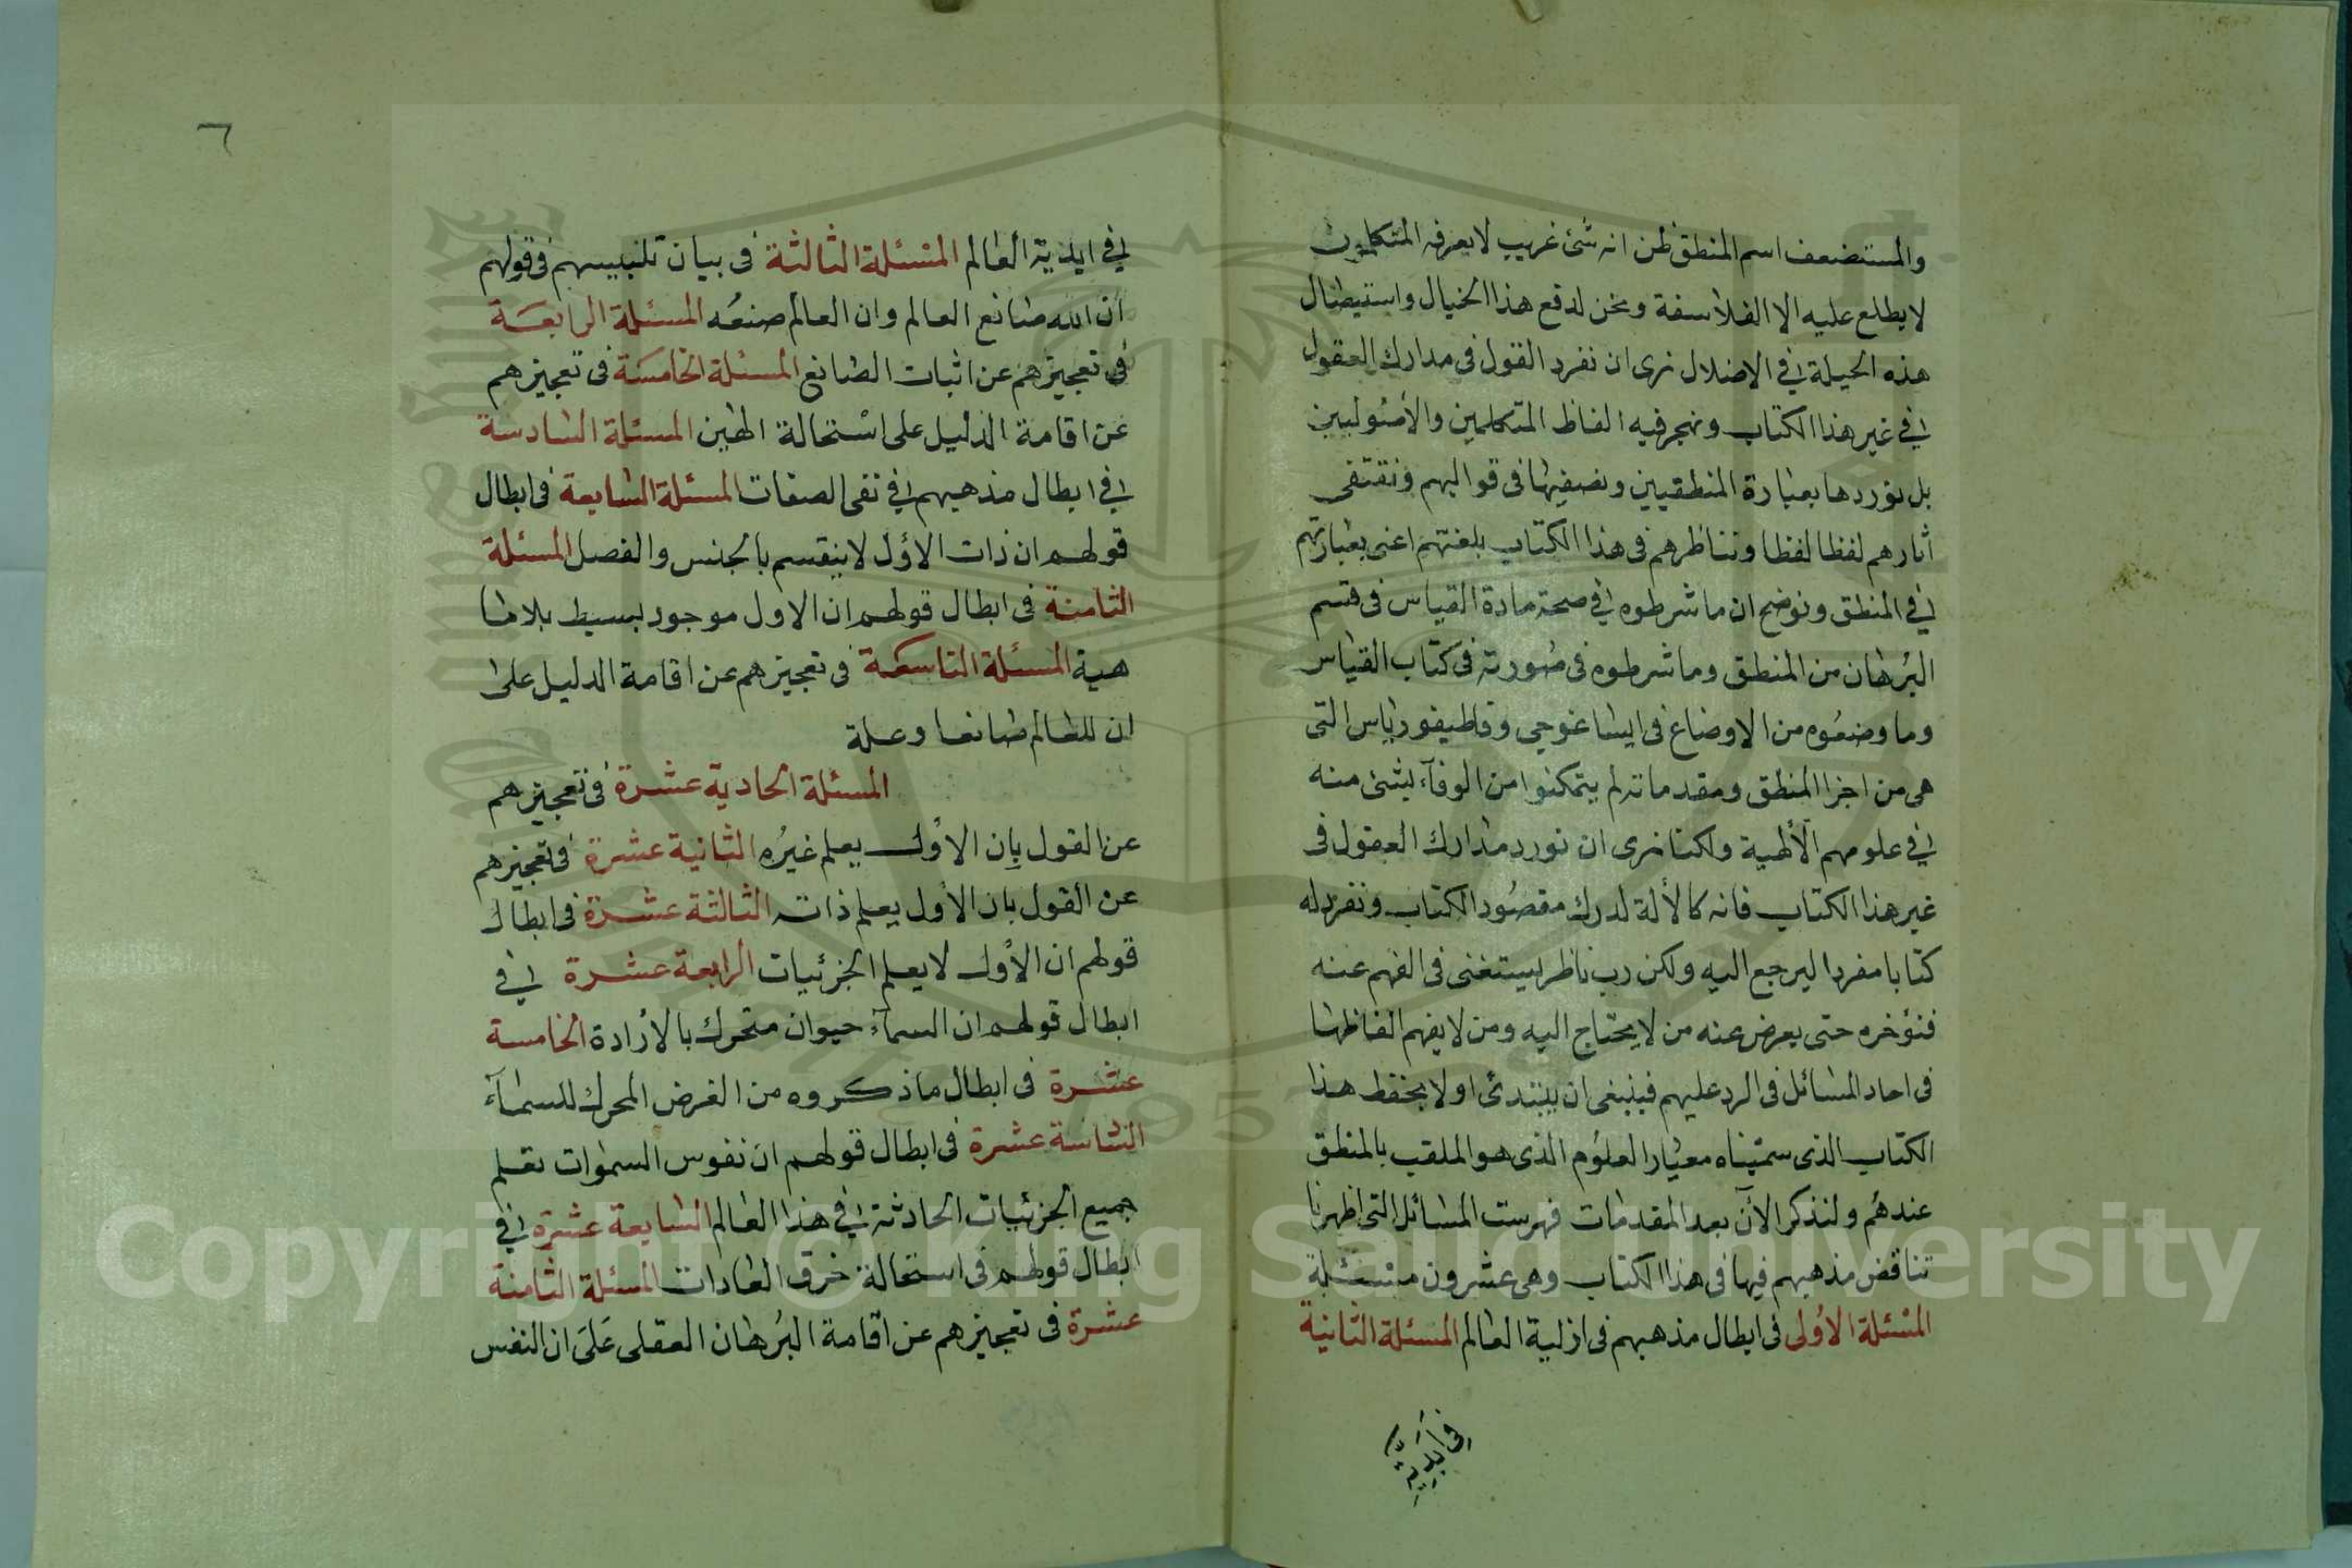 والمستضعف اسم المنطق ظن انه شئ غريب لا يعرفه المتكلمون
لا يطلع عليه الا الفلاسفة ونحن لدفع هذا الخيال واستيصال
هذه الحيلة في الاضلال نرى ان نفرد القول في مدارك العقول
في غير هذا الكتاب ونهجر فيه الفاظ المتكلمين والأصوليين
بل نوردها بعبارة المنطقيين ونصفيها في قوالبهم ونقتفى
اثارهم لفظا لفظا ونناظرهم في هذا الكتاب بلغتهم اعنى بعبارتهم
في المنطق ونوضح ان ما شرطوه في صحة مادة القياس في قسم
البرهان من المنطق وما شرطوه في صورته في كتاب القياس
وما وضعوه من الاوضاع في ايساغوجى وقاطيغورياس التى
هى من اجزا المنطق ومقدماته لم يتمكنوا من الوفآء بشئ منه
في علومهم الألهية ولكنا نرى ان نورد مدارك العقول في
غير هذا الكتاب فانه كالألة لدرك مقصود الكتاب ونفرد له
كتابا مفردا ليرجع اليه ولكن رب ناظر يستغنى في الفهم عنه
فنؤخره حتى يعرض عنه من لا يحتاج اليه ومن لا يفهم الفاظها
في احاد المسائل في الرد عليهم فينبغى ان يبتدئ اولا بحفظ هذا
الكتاب الذى سميناه معيار العلوم الذى هو الملقب بالمنطق
عندهم ولنذكر الآن بعد المقدمات فهرست المسائل التى اظهرنا
تناقض مذهبهم فيها في هذا الكتاب وهى عشرون مسئلة
المسئلة الاولى في ابطال مذهبهم في ازلية العالم المسئلة الثانية
في أبدية
٦
في ابدية العالم المسئلة الثالثة في بيان تلبيسهم في قولهم
ان الله صانع العالم وان العالم صنعه المسئلة الرابعة
في تعجيزهم عن اثبات الصانع المسئلة الخامسة في تعجيزهم
عن اقامة الدليل على استحالة الهين المسئلة السادسة
في ابطال مذهبهم في نفى الصفات المسئلة السابعة في ابطال
قولهم ان ذات الاول لا ينقسم بالجنس والفصل المسئلة
الثامنة في ابطال قولهم ان الاول موجود بسيط بلا ما
هية المسئلة التاسعة في تعجيزهم عن اقامة الدليل على
ان للعالم صانعا وعلة
المسئلة الحادية عشرة في تعجيزهم
عن القول بان الاول يعلم غيره الثانية عشرة في تعجيزهم
عن القول بان الأول يعلم ذاته الثالثة عشرة في ابطال
قولهم ان الأول لا يعلم الجزئيات الرابعة عشرة في
ابطال قولهم ان السمآء حيوان متحرك بالأرادة الخامسة
عشرة في ابطال ما ذكروه من الغرض المحرك للسمآء
السادسة عشرة في ابطال قولهم ان نفوس السموات تعلم
جميع الجزئيات الحادثة في هذا العالم السابعة عشرة في
ابطال قولهم في استحالة خرق العادات المسئلة الثامنة
عشرة في تعجيزهم عن اقامة البرهان العقلى على ان النفس
Copyright © King Saud University
1957